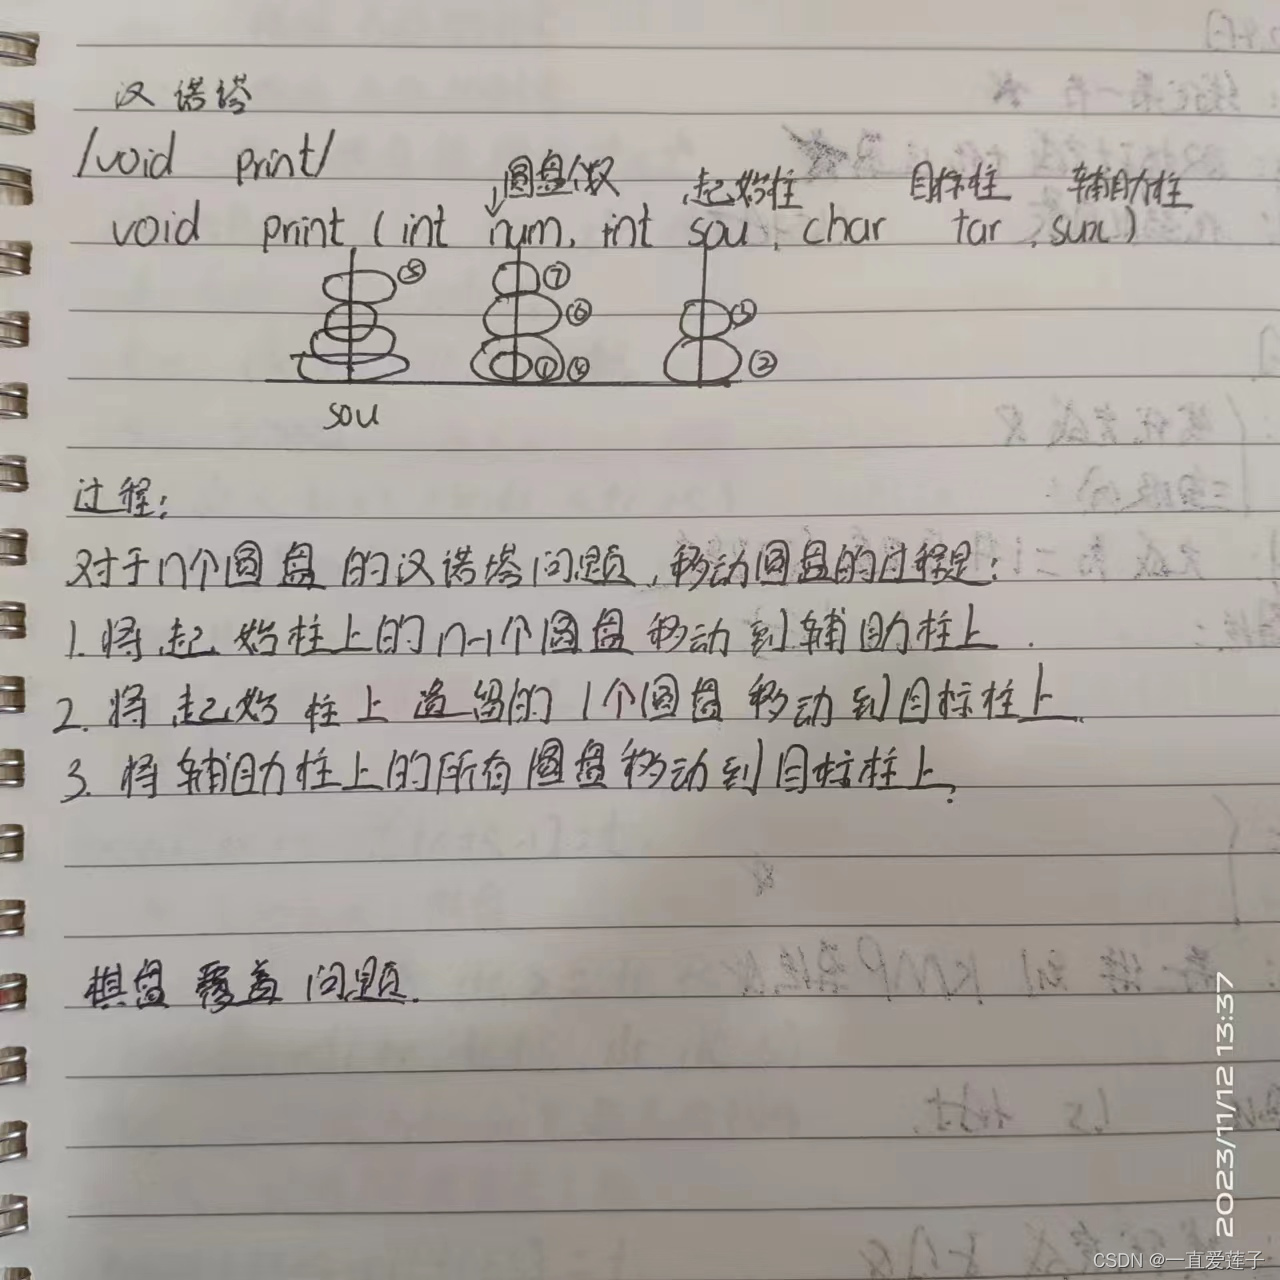 汉诺塔
/void print/
圆盘个数 起始柱 目标柱 辅助柱
void print (int num, int sou, char tar, sux)
⑤ ⑦
⑥ ③
① ④ ②
sou
过程:
对于n个圆盘的汉诺塔问题,移动圆盘的过程是:
1. 将起始柱上的n-1个圆盘移动到辅助柱上.
2. 将起始柱上遗留的1个圆盘移动到目标柱上
3. 将辅助柱上的所有圆盘移动到目标柱上.
棋盘覆盖问题.
2023/11/12 13:37
CSDN @一直爱莲子